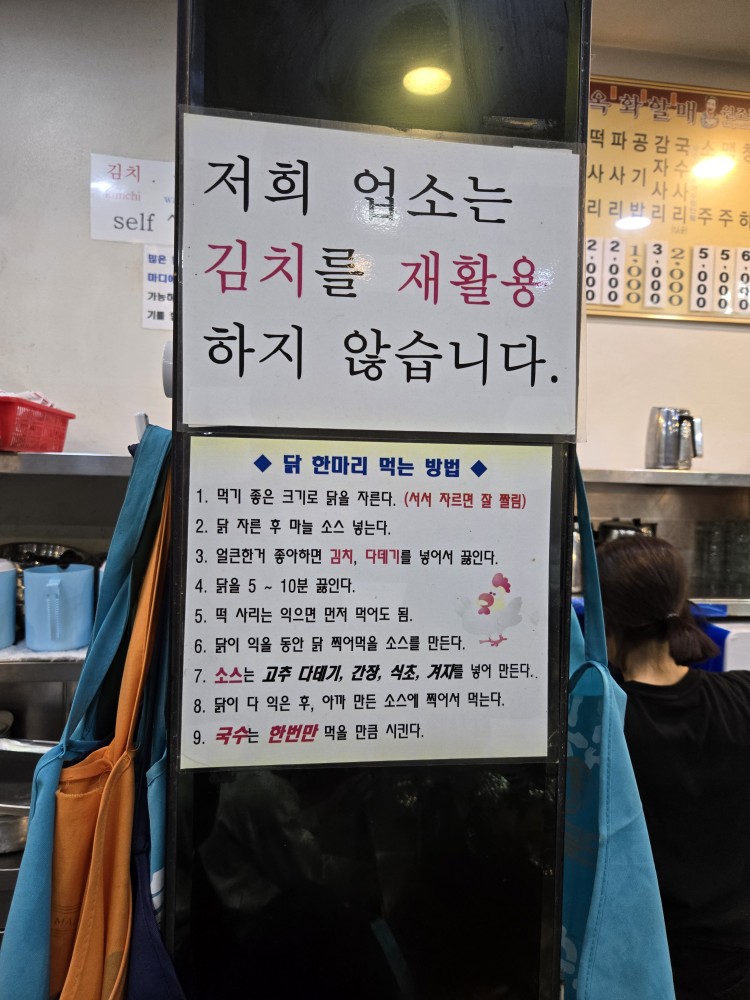 저희 업소는
김치를 재활용
하지 않습니다.
◆ 닭 한마리 먹는 방법 ◆
1. 먹기 좋은 크기로 닭을 자른다. (서서 자르면 잘 짤림)
2. 닭 자른 후 마늘 소스 넣는다.
3. 얼큰한거 좋아하면 김치, 다데기를 넣어서 끓인다.
4. 닭을 5 ~ 10분 끓인다.
5. 떡 사리는 익으면 먼저 먹어도 됨.
6. 닭이 익을 동안 닭 찍어먹을 소스를 만든다.
7. 소스는 고추 다데기, 간장, 식초, 겨자를 넣어 만든다..
8. 닭이 다 익은 후, 아까 만든 소스에 찍어서 먹는다.
9. 국수는 한번만 먹을 만큼 시킨다.
김치 .
kimchi
self
많은
옥화할매
떡사리
파사리
공기밥
감자사리
국수사리